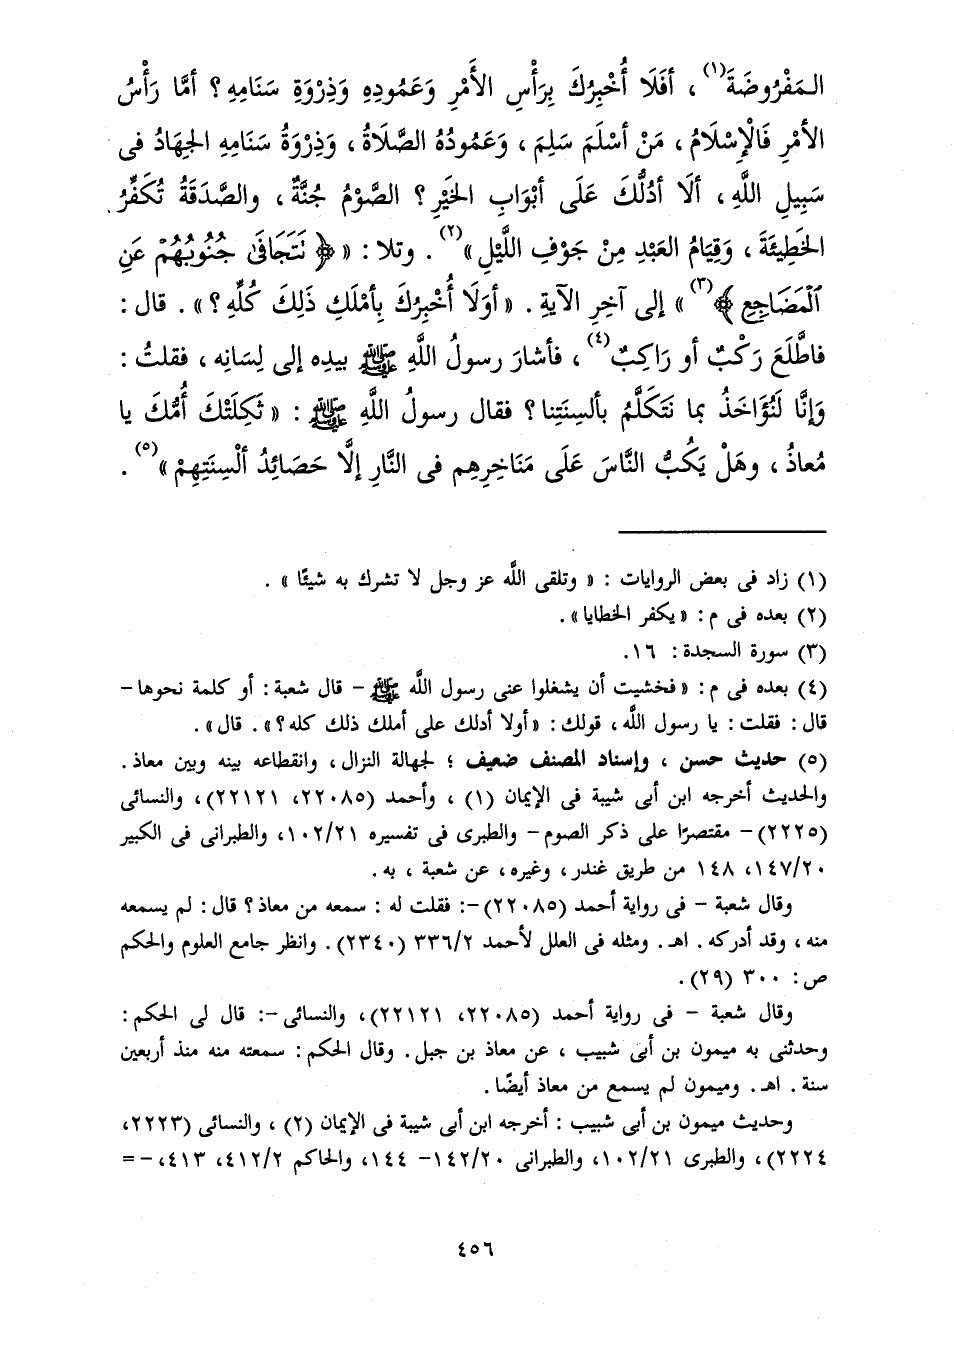 المَفْرُوضَةَ(١) ، أفَلَا أُخْبِرُكَ بِرَأْسِ الأَمْرِ وَعَمُودِهِ وَذِرْوَةِ سَنَامِهِ ؟ أمَّا رَأْسُ
الأمْرِ فَالْإِسْلَامُ ، مَنْ أسْلَمَ سَلِمَ ، وَعَمُودُهُ الصَّلَاةُ ، وَذِرْوَةُ سَنَامِهِ الجِهَادُ فى
سَبِيلِ اللَّهِ ، ألَا أدُلُّكَ عَلَى أبْوَابِ الخَيْرِ ؟ الصَّوْمُ جُنَّةٌ ، والصَّدَقَةُ تُكَفِّرُ
الخَطِيئَةَ ، وَقِيَامُ العَبْدِ مِنْ جَوْفِ اللَّيْلِ »(٢) . وتلا : « ﴿ نَتَجَافَىٰ جُنُوبُهُمْ عَنِ
ٱلْمَضَاجِعِ ﴾(٣) » إلى آخِرِ الآيةِ . « أوَلَا أُخْبِرُكَ بِأمْلَكِ ذَلِكَ كُلِّهِ ؟ » . قال :
فاطَّلَعَ رَكْبٌ أو رَاكِبٌ(٤) ، فأشارَ رسولُ اللَّهِ ﷺ بيدِه إلى لِسَانِه ، فقلتُ :
وَإنَّا لَنُؤَاخَذُ بما نَتَكَلَّمُ بألسِنَتِنا ؟ فقال رسولُ اللَّهِ ﷺ : « ثَكِلَتْكَ أُمُّكَ يا
مُعاذُ ، وهَلْ يَكُبُّ النَّاسَ عَلَى مَنَاخِرِهِم فى النَّارِ إلَّا حَصَائِدُ ألْسِنَتِهِمْ »(٥) .
(١) زاد فى بعض الروايات : « وتلقى اللَّه عز وجل لا تشرك به شيئًا » .
(٢) بعده فى م : « يكفر الخطايا » .
(٣) سورة السجدة : ١٦ .
(٤) بعده فى م : « فخشيت أن يشغلوا عنى رسول اللَّه ﷺ – قال شعبة : أو كلمة نحوها –
قال : فقلت : يا رسول اللَّه ، قولك : « أولا أدلك على أملك ذلك كله ؟ » . قال » .
(٥) حديث حسن ، وإسناد المصنف ضعيف ؛ لجهالة النزال ، وانقطاعه بينه وبين معاذ .
والحديث أخرجه ابن أبى شيبة فى الإيمان (١) ، وأحمد (٢٢٠٨٥، ٢٢١٢١) ، والنسائى
(٢٢٢٥) – مقتصرًا على ذكر الصوم – والطبرى فى تفسيره ١٠٢/٢١ ، والطبرانى فى الكبير
١٤٧/٢٠ ، ١٤٨ من طريق غندر ، وغيره ، عن شعبة ، به .
وقال شعبة – فى رواية أحمد (٢٢٠٨٥) – : فقلت له : سمعه من معاذ ؟ قال : لم يسمعه
منه ، وقد أدركه . اهـ . ومثله فى العلل لأحمد ٣٣٦/٢ (٢٣٤٠) . وانظر جامع العلوم والحكم
ص : ٣٠٠ (٢٩) .
وقال شعبة – فى رواية أحمد (٢٢٠٨٥، ٢٢١٢١) ، والنسائى – : قال لى الحكم :
وحدثنى به ميمون بن أبى شبيب ، عن معاذ بن جبل . وقال الحكم : سمعته منه منذ أربعين
سنة . اهـ . وميمون لم يسمع من معاذ أيضًا .
وحديث ميمون بن أبى شبيب : أخرجه ابن أبى شيبة فى الإيمان (٢) ، والنسائى (٢٢٢٣ ،
٢٢٢٤) ، والطبرى ١٠٢/٢١ ، والطبرانى ١٤٢/٢٠– ١٤٤ ، والحاكم ٤١٢/٢ ، ٤١٣ ، – =
٤٥٦